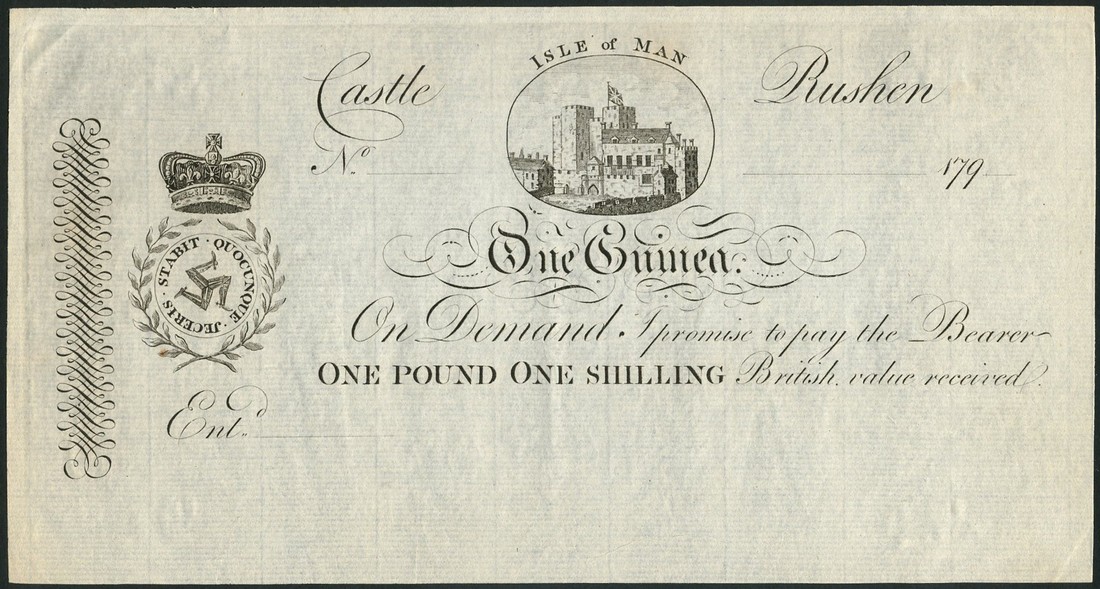 ISLE of MAN
Castle Rushen
No. 179
STABIT · QUOCUNQUE · JECERIS
One Guinea.
On Demand I promise to pay the Bearer
ONE POUND ONE SHILLING British, value received.
Entd.